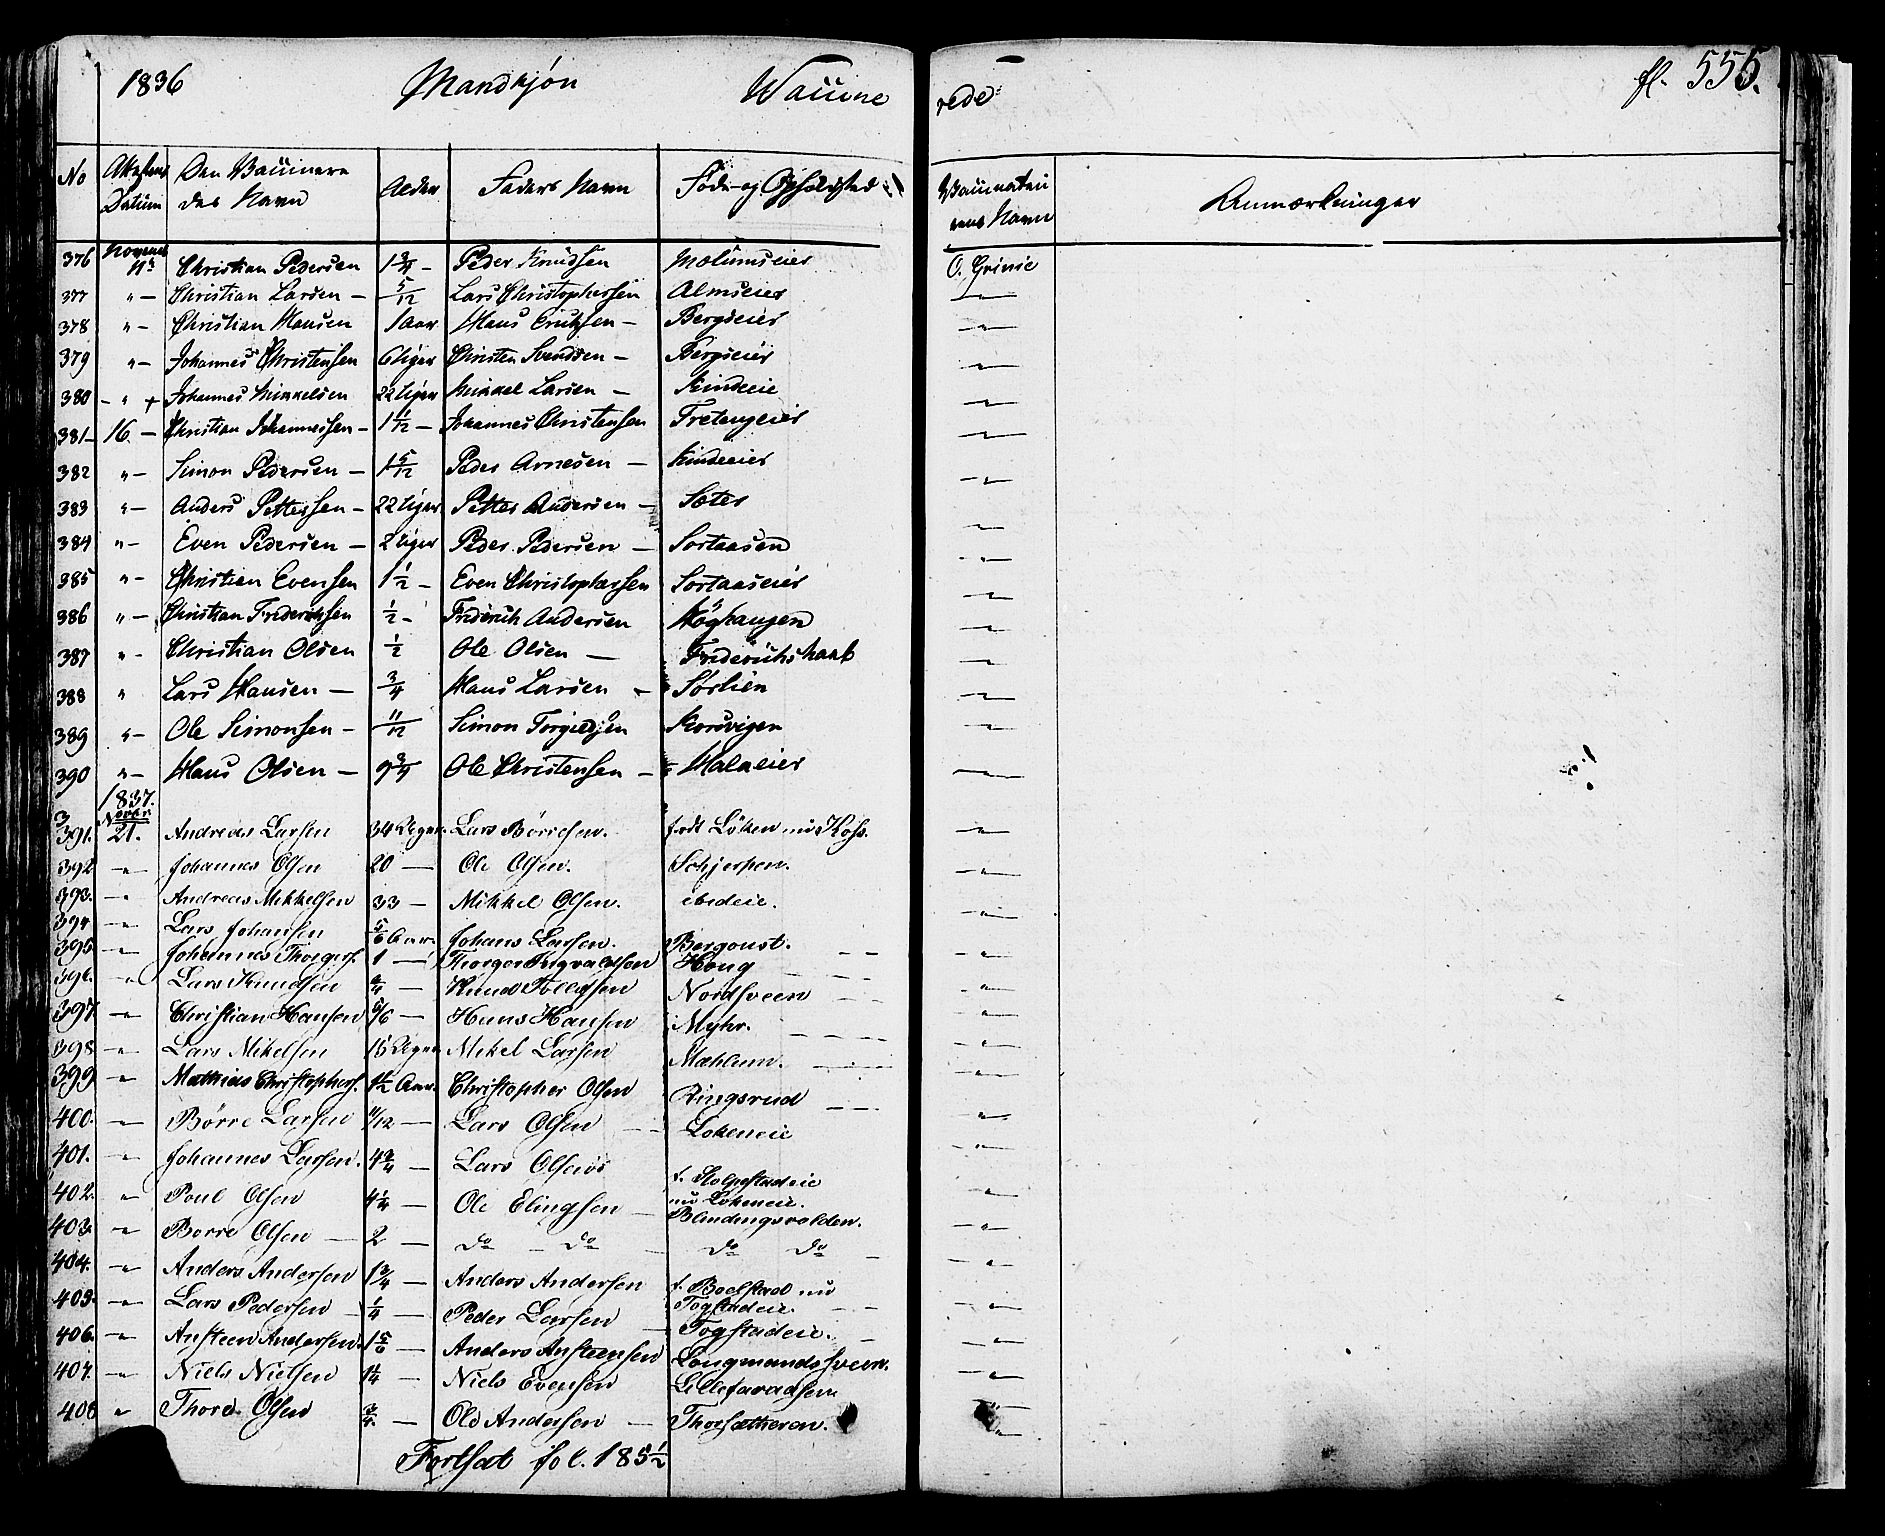 1836 Mandkjøn Waccine rede fl. 555.
No Attestens Datum Den Vaccinere des Navn Alder Faders Navn Føde- og Opholdsted Vaccinateu rens Navn Anmærkninger
376 Novembr 11te Christian Pedersen 1 3/4 - Peder Knudsen Mælumseier O. Grinie
377 " - Christian Larsen - 5/12 Lars Christophersen Almseier - " -
378 " - Christian Hansen 1 aar Hans Erichsen - Bergseier - " -
379 " - Johannes Christensen 6 Uger Christen Svendsen - Bergseier - " -
380 - " + Johannes Mikkelsen 22 Uger Mikkel Larsen - Kindeeie - " -
381 - 16 - Christian Johannessen - 1 1/12 - Johannes Christensen Fretengeier - " -
382 " - Simon Pedersen - 1 5/12 Peder Arnesen - Kindeeier - " -
383 " - Anders Pettersen - 22 Uger Petter Andersen - Sæter - " -
384 " - Even Pedersen - 2 Uger Peder Pedersen - Sortaasen - " -
385 " - Christian Evensen 1 1/2 - Even Christophersen Sortaaseier - " -
386 " - Christian Frederichsen 1/2 - Friderich Andersen Höghaugen - " -
387 " - Christian Olsen 1/2 Ole Olsen - Friderichskaab - " -
388 " Lars Hansen - 3/4 Hans Larsen - Sørlien - " -
389 " - Ole Simonsen - 11/12 Simon Torgielsen Korsvigen - " -
390 " - Hans Olsen - 9 3/4 Ole Christensen - Malaeier - " -
1837.
391. Novbr 21. Andreas Larsen 34 Uger. Lars Börresen. født Löken nu Koss. - " -
392 - " - Johannes Olsen 20 - Ole Olsen. Schjerpen. - " -
393. - " Andreas Mikkelsen 33 - Mikkel Olsen. ibideie. - " -
394 - " - Lars Johansen 5/6 Aar. Johans Larsen. Bergoust. - " -
395 - " - Johannes Thorgers. 1 - Thorger Trigvaldsen Houg - " -
396. - " Lars Knudsen 3/4 - Knud Pollesen Nordsveen - " -
397 - " - Christian Hansen 5/6 - Hans Hansen Myhr. - " -
398 - " - Lars Mikelsen 15 Uger. Mikel Larsen Mæhlum. - " -
399 - " - Mathias Christophers. 1 1/2 Aar. Christopher Olsen Ringsrud - " -
400. - " - Börre Larsen 11/12 - Lars Olsen - Lökeneie - " -
401. - " - Johannes Larsen. 4 3/4 - Lars Olsen f. Stolpestadeie nu Lökeneie. - " -
402. - " Poul Olsen 4 1/4 - Ole Elingsen - Blindingsvolden. - " -
403. - " - Borre Olsen - 2 - do - do - do do - - " -
404. - " - Anders Andersen 1 3/4 - Anders Andersen f. Boelstad nu Togstadeie. - " -
405. - " - Lars Pedersen - 1/4 - Peder Larsen - Togstadeie. - " -
406. - " - Ansteen Andersen. 1 5/6 - Anders Ansteensen Langmandssveen. - " -
407. - " - Niels Nielsen 1 1/4 - Niels Evensen Lillefaradsen - " -
408 " Thord Olsen 3/4. - Ole Andersen - Thorsætheren. - " -
Fortsat fol. 185 1/2